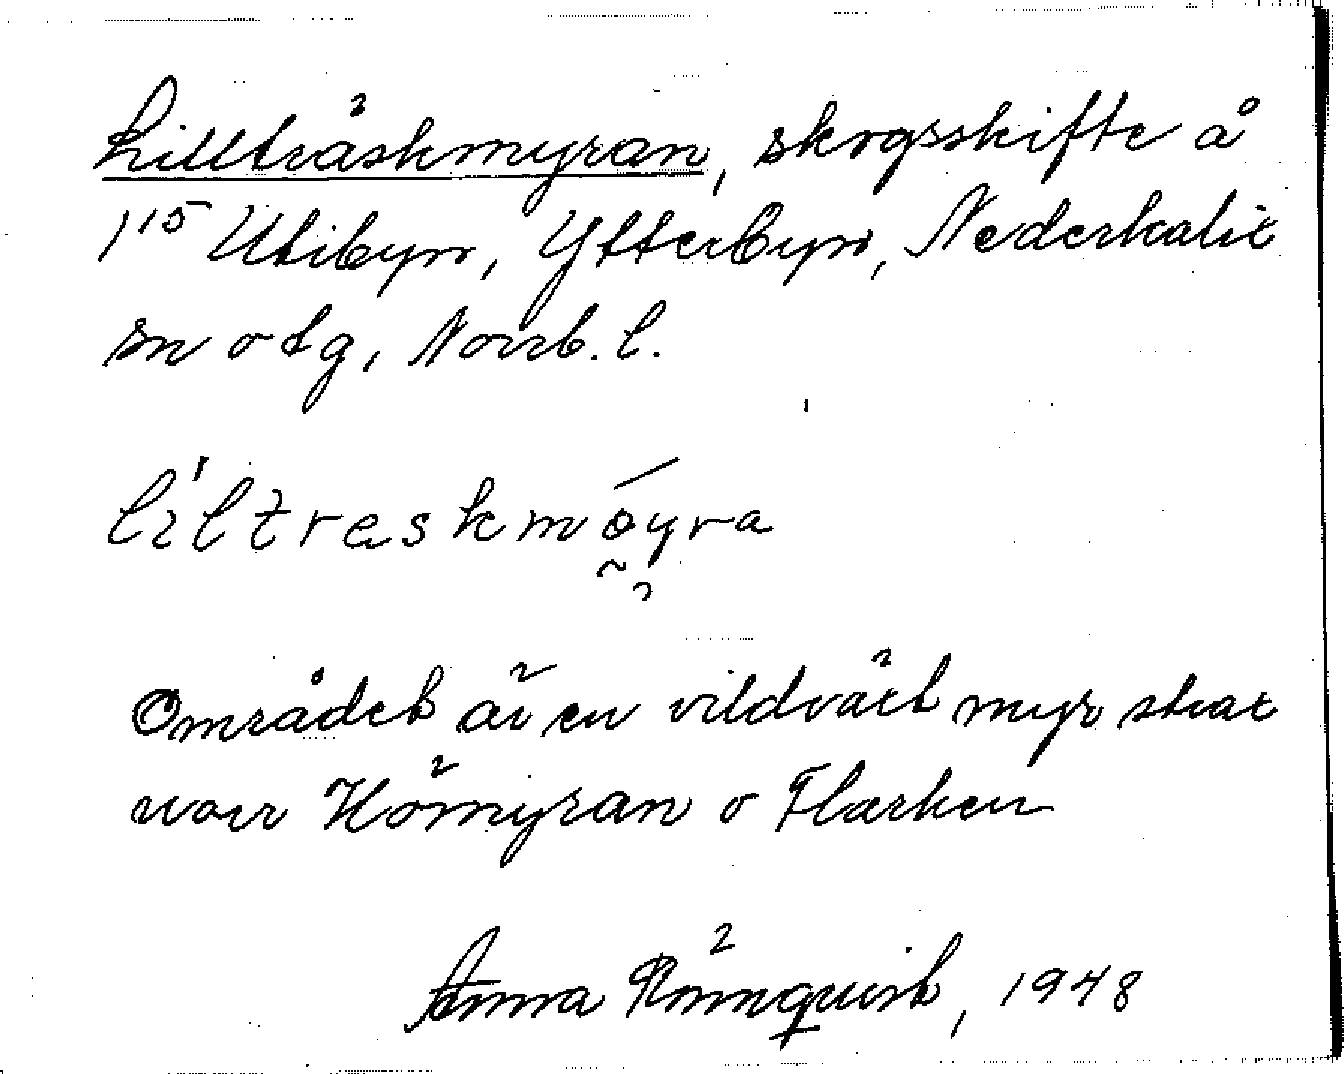 Lillträskmyran, skogsskifte å
1¹⁵ Utibyn, Ytterbyn, Nederkalix
sn o tg, Norrb. l.
líltræskmóyra
Området är en vildvärt myr strax
norr Kömyran o Flarken
Anna Rönnquist, 1948